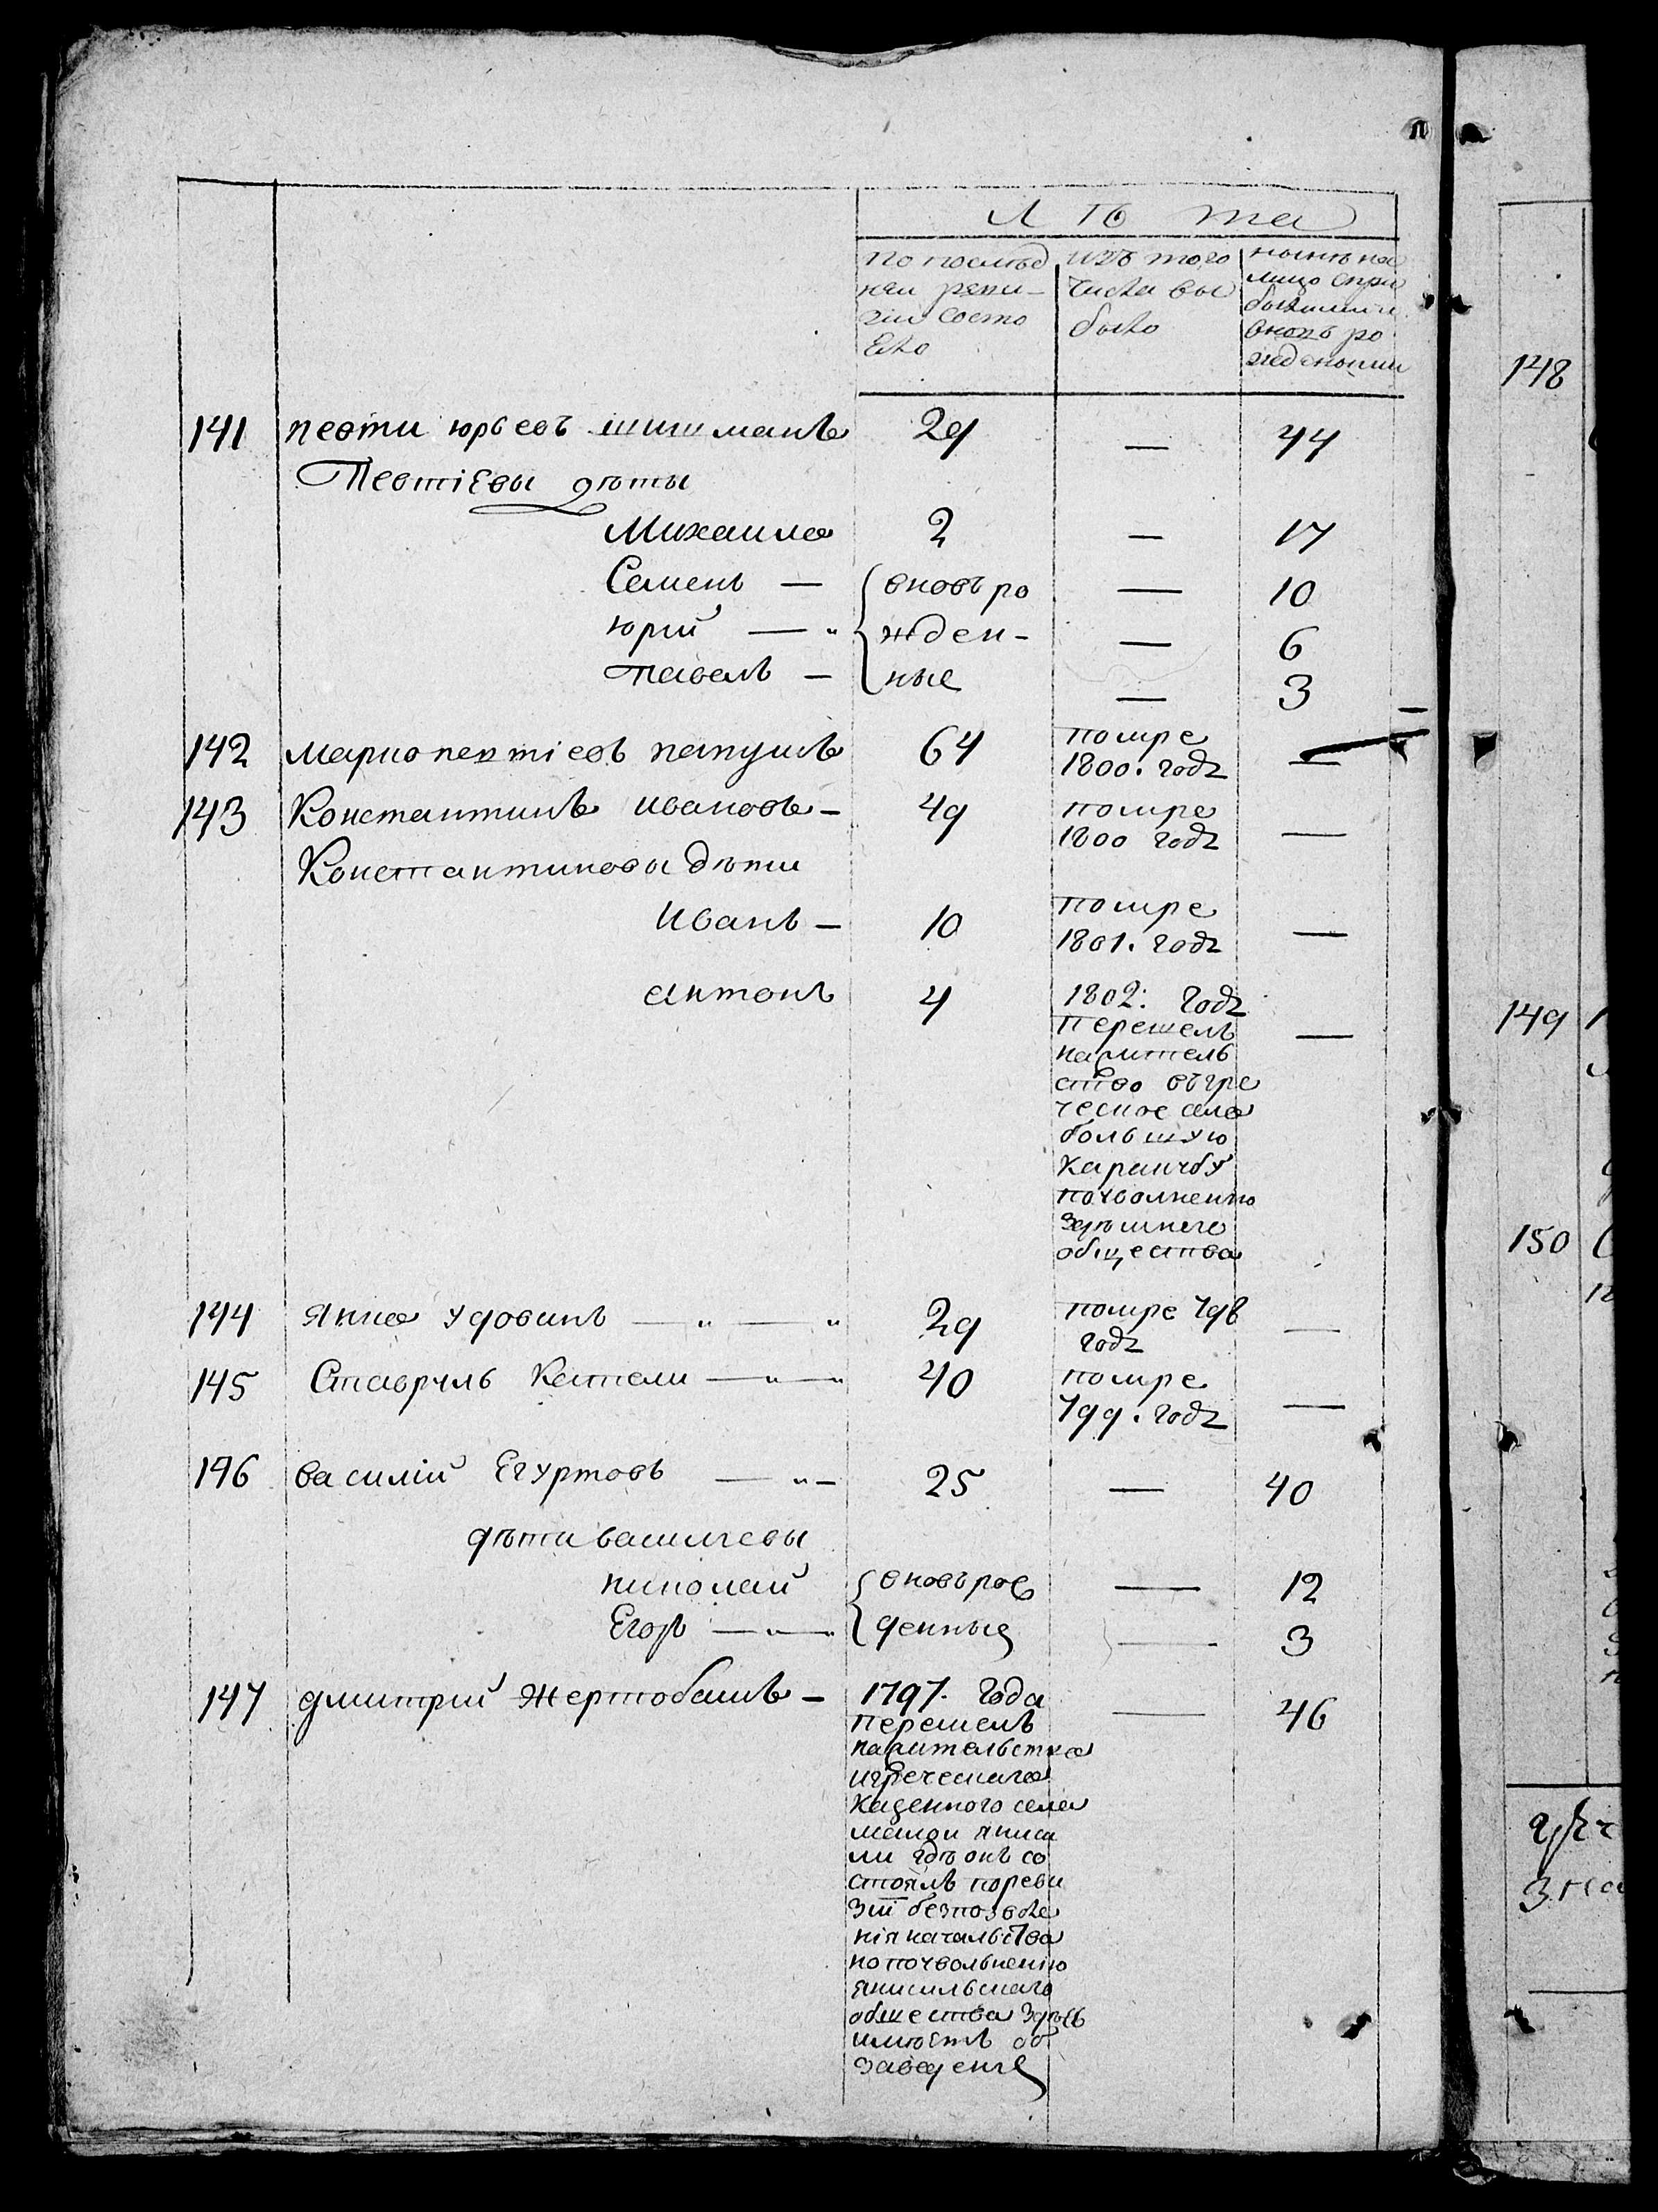 Лѣта
по послѣд
ней реви-
зіи состо
Ело
изъ того
числа вы
было
нынѣ на
лицо спри
бывшими и
вновь ро
жденными
141 певти юрьевъ шишманъ 29 — 44
Певтіевы дѣты
Михаила 2 — 17
Семенъ — вновъ ро — 10
юрій — жден- — 6
павелъ — ные — 3
142 марко певтіевъ папушъ 64 помре 1800. годȣ —
143 Константинъ ивановъ — 49 помре 1800 годȣ —
Константиновы дѣти
иванъ — 10 помре 1801. годȣ —
антонъ 4 1802: годȣ —
перешелъ
на жителъ
ство въ гре
ческое село
большую
каракубȣ
по уволнению
здѣшнего
общества
144 янка удованъ — 29 помре 798 годȣ —
145 Ставрилъ Кетели — 40 помре 799. годȣ —
146 василій Егуртовъ — 25 — 40
дѣти василиевы
николай вновъ рож — 12
Егоръ — денные — 3
147 дмитрій Жертобашъ — 1797. года — 46
перешелъ
на жительства
из греческаго
казенного села
малои яниса
ли гдѣ онъ со
стоялъ по реви
зіи без позволе
нія начальства
но по увольнению
янисальскаго
общества здѣсь
имѣетъ об
заведение
148
149
150